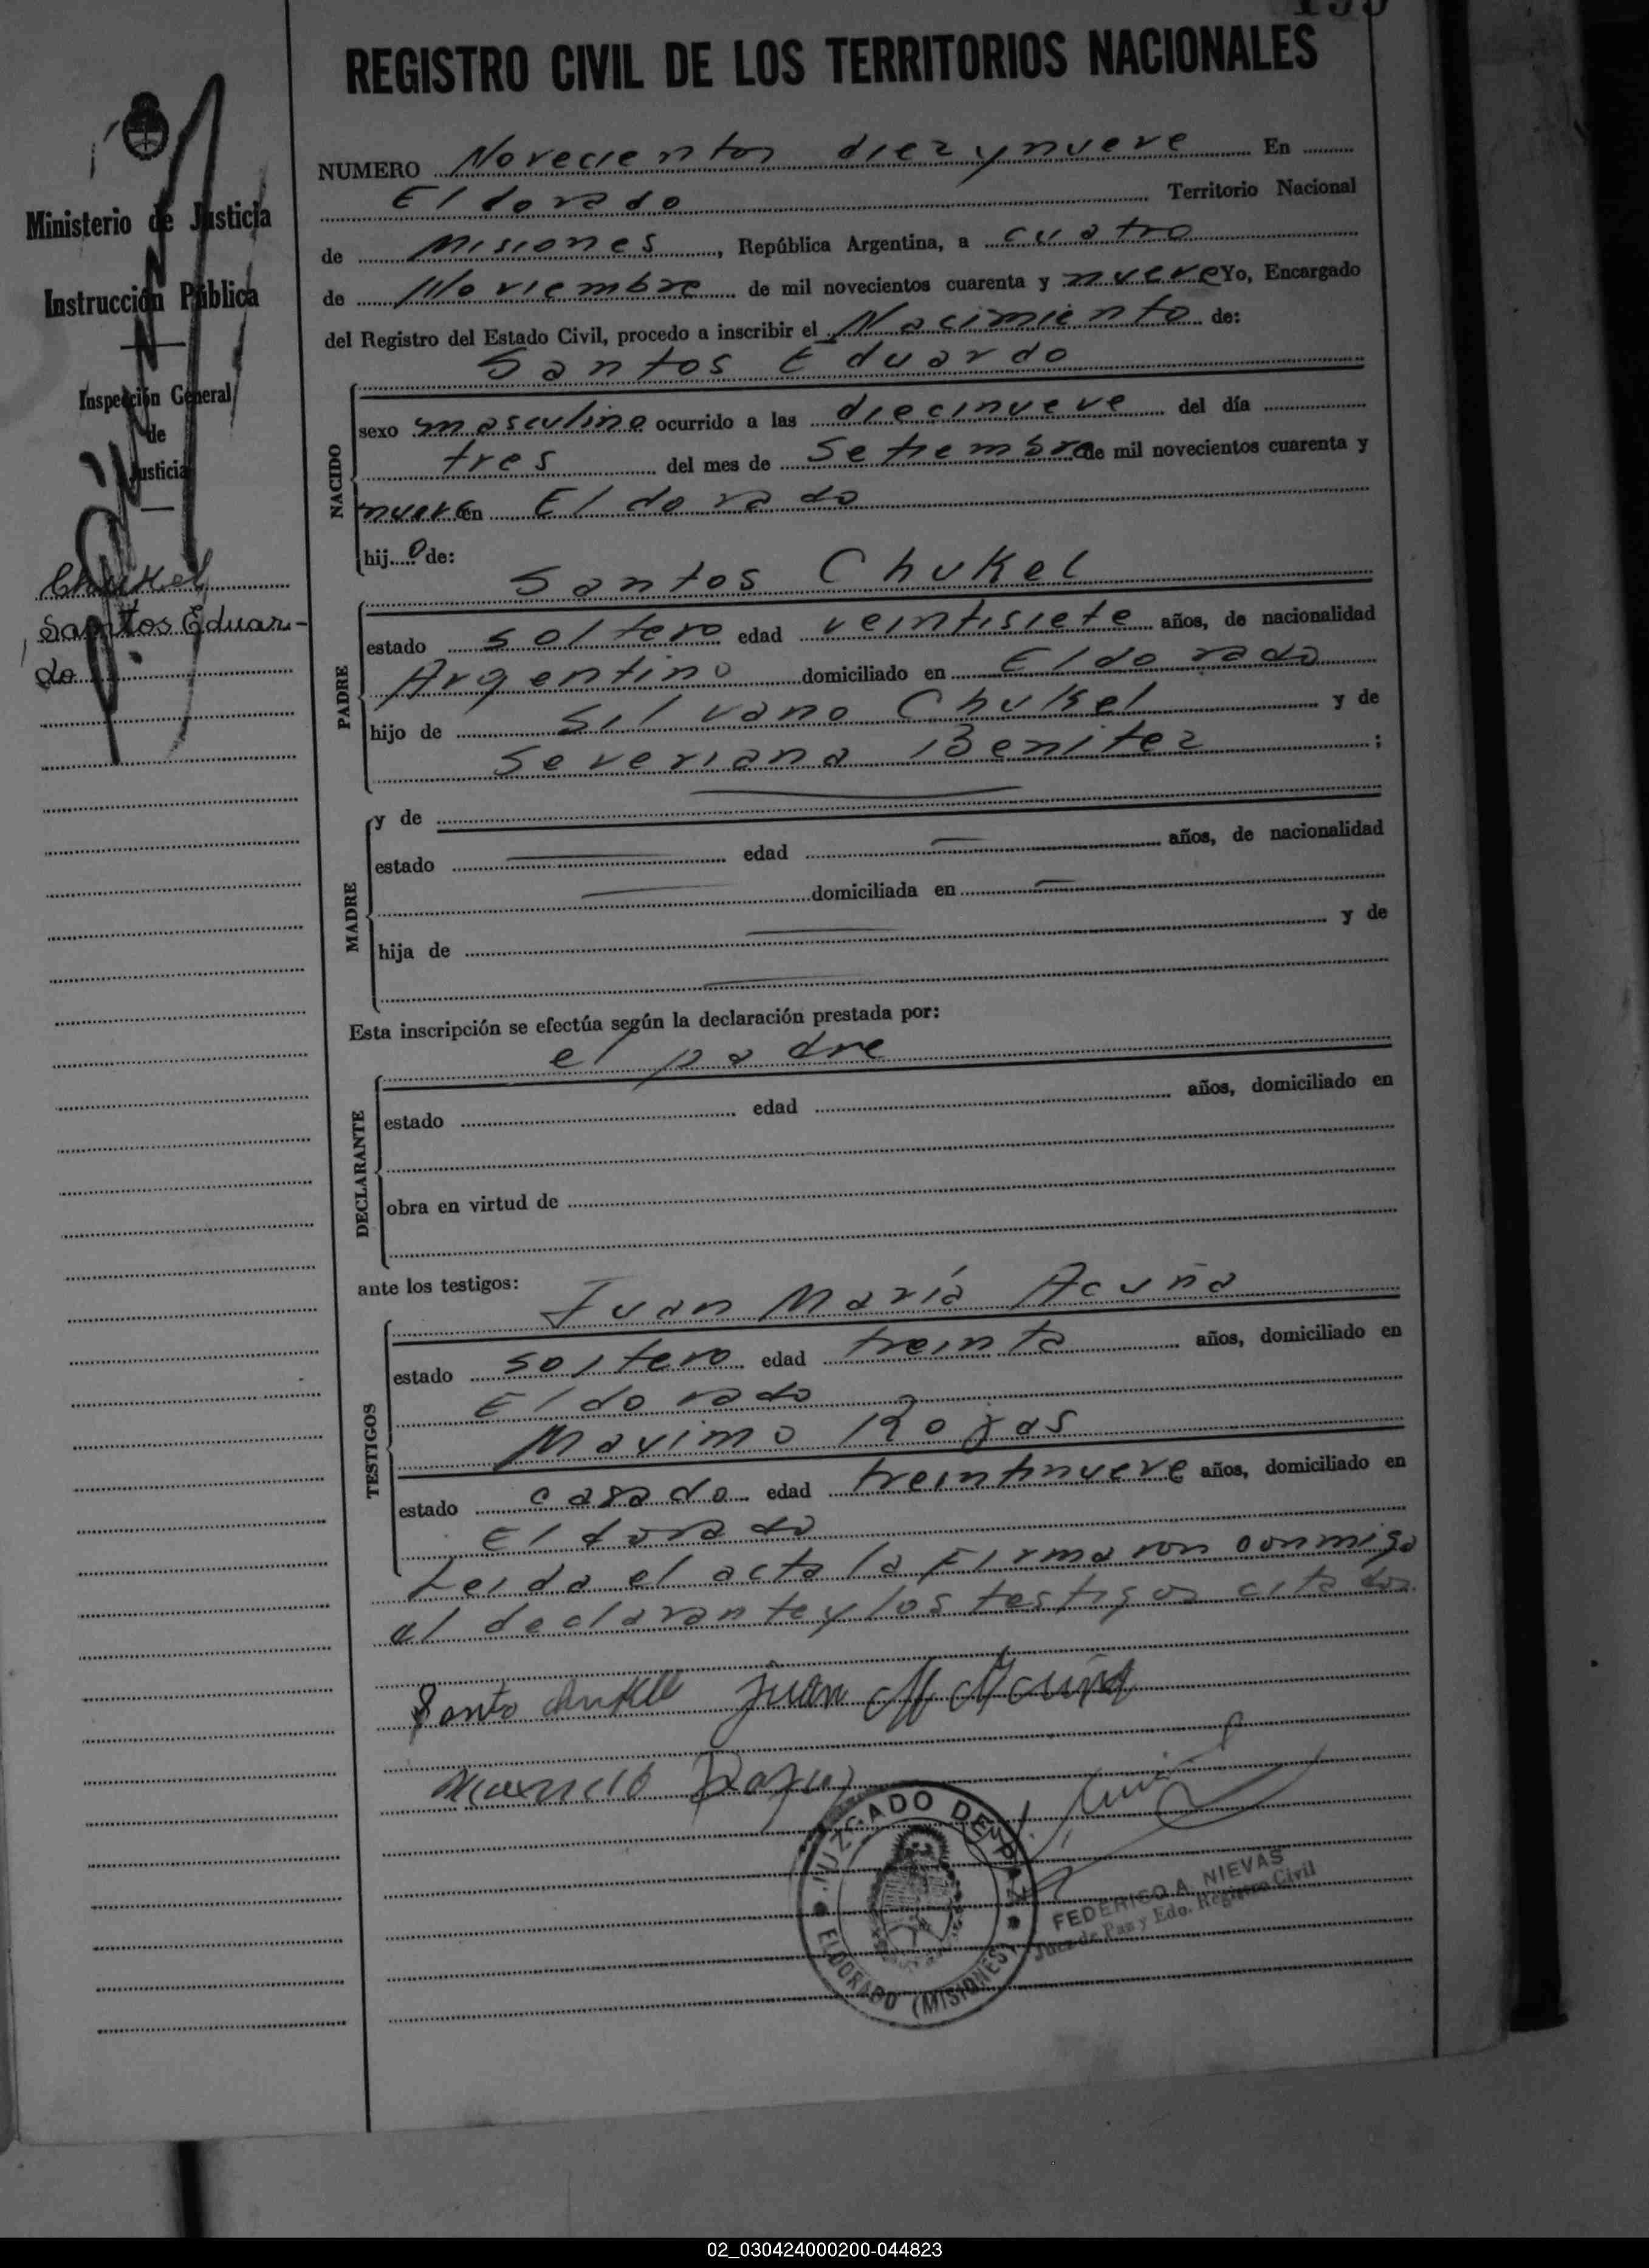 REGISTRO CIVIL DE LOS TERRITORIOS NACIONALES
Ministerio de Justicia
Instrucción Pública
Inspección General
de
Justicia
Chukel
Santos Eduar-
do
NUMERO Novecientos diez y nueve En
Eldorado Territorio Nacional
de Misiones, República Argentina, a cuatro
de Noviembre de mil novecientos cuarenta y nueve Yo, Encargado
del Registro del Estado Civil, procedo a inscribir el Nacimiento de:
Santos Eduardo
NACIDO
sexo masculino ocurrido a las diecinueve del día
tres del mes de Setiembre de mil novecientos cuarenta y
nueve en Eldorado
hij o de:
Santos Chukel
PADRE
estado soltero edad veintisiete años, de nacionalidad
Argentino domiciliado en Eldorado
hijo de Silvano Chukel y de
Severiana Benitez ;
MADRE
y de
estado edad años, de nacionalidad
domiciliada en
hija de y de
Esta inscripción se efectúa según la declaración prestada por:
el padre
DECLARANTE
estado edad años, domiciliado en
obra en virtud de
ante los testigos:
Juan María Acuña
TESTIGOS
estado soltero edad treinta años, domiciliado en
Eldorado
Maximo Rojas
estado casado edad treintinueve años, domiciliado en
Eldorado
Leida el acta la firmaron conmigo
el declarante y los testigos citados
Santo Chukel Juan M Acuña
Rojas
JUZGADO DE PAZ
ELDORADO (MISIONES)
FEDERICO A. NIEVAS
Juez de Paz y Edo. Registro Civil
02_030424000200-044823